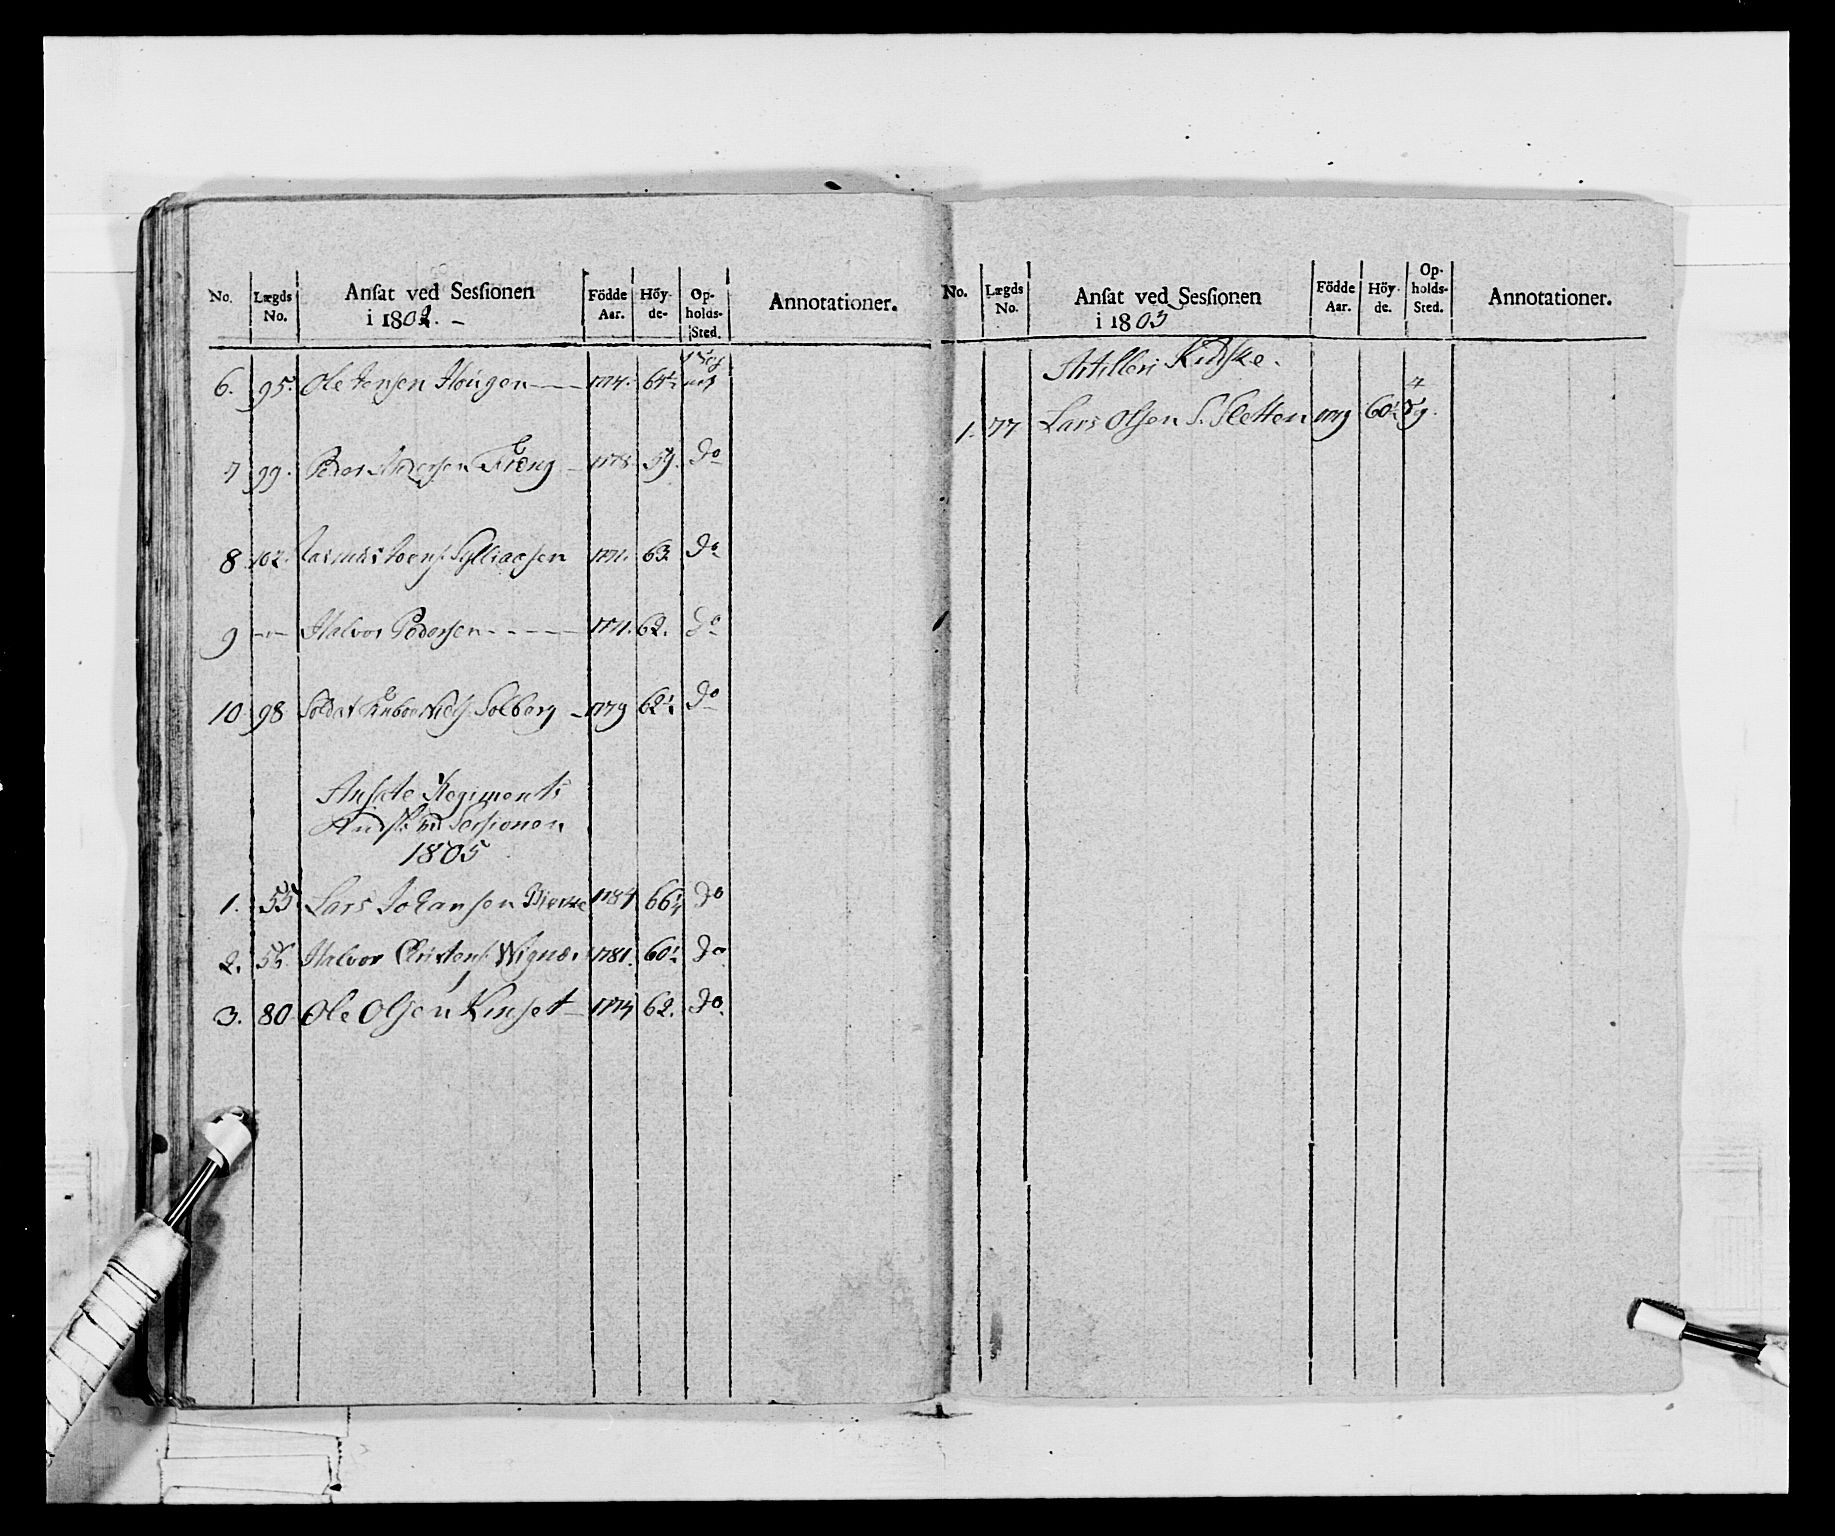 No. Lægds No. Ansat ved Sessionen i 1802. Födde Aar. Höyde. Opholds-Sted. Annotationer.
6. 95. Ole Jensen Hougen 1774. 64½
7 99. Peder Andersen 1778. 59. Do
8 102. Rasmus 1771. 63. Do
9 Halvor Pedersen 1771. 62. Do
10 98 Soldat Solberg 1779 62½ Do
Ansatte Regiments
ved Sessionen
1805
1. 55 Lars Johansen 1784 66¼ Do
2. 56 Halvor Christens. 1781. 60½ Do
3. 80 Ole Olsen Kinset 1774 62. Do.
No. Lægds No. Ansat ved Sessionen i 1803 Födde Aar. Höyde. Opholds-Sted. Annotationer.
Artilleri Kudske.
1. 77 Lars Olsen S. Sletten 1779 60½